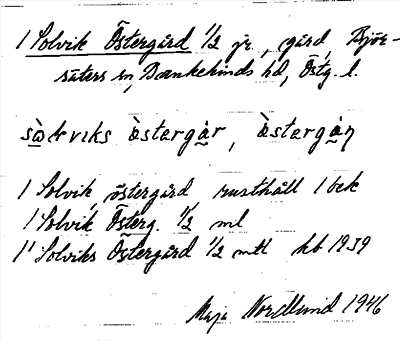 1 Solvik Östergård 1/2 jr, gård, Björ-
säters sn, Bankekinds hd, Östg. l.
1 Solvik, östergård rusthåll 1 bek
1 Solvik, Österg. 1/2 ml
1' Solviks Östergård 1/2 mtl kb 1939
Maja Nordlund 1946